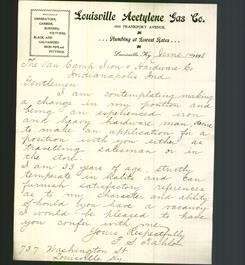 Louisville Acetylene Gas Co.
GENERATORS,
CARBIDE,
BURNERS,
FIXTURES,
BLACK AND
GALVANIZED
IRON PIPE and
FITTINGS
Plumbing at Lowest Rates
Louisville, Ky. June
The Van Camp Iron & Hardware Co
Indianapolis Ind
Gentlemen
I am contemplating making
a change in my position and
being an experienced iron
and heavy hardware man, desire
to make an application for a
position with you either as
travelling salesman or in
the store.
I am 33 years of age strictly
temperate in habits and can
furnish satisfactory references
as to my character and ability
Should you have a vacancy
I would be pleased to have
you confer with me.
Yours Respectfully
737 Washington St
Louisville Ky